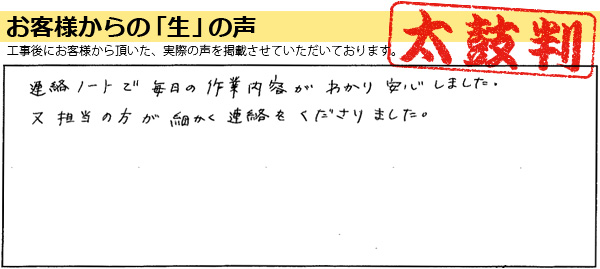 お客様からの「生」の声
太鼓判
工事後にお客様から頂いた、実際の声を掲載させていただいております。
連絡ノートで毎日の作業内容がわかり安心しました。
又担当の方が細かく連絡をくださりました。